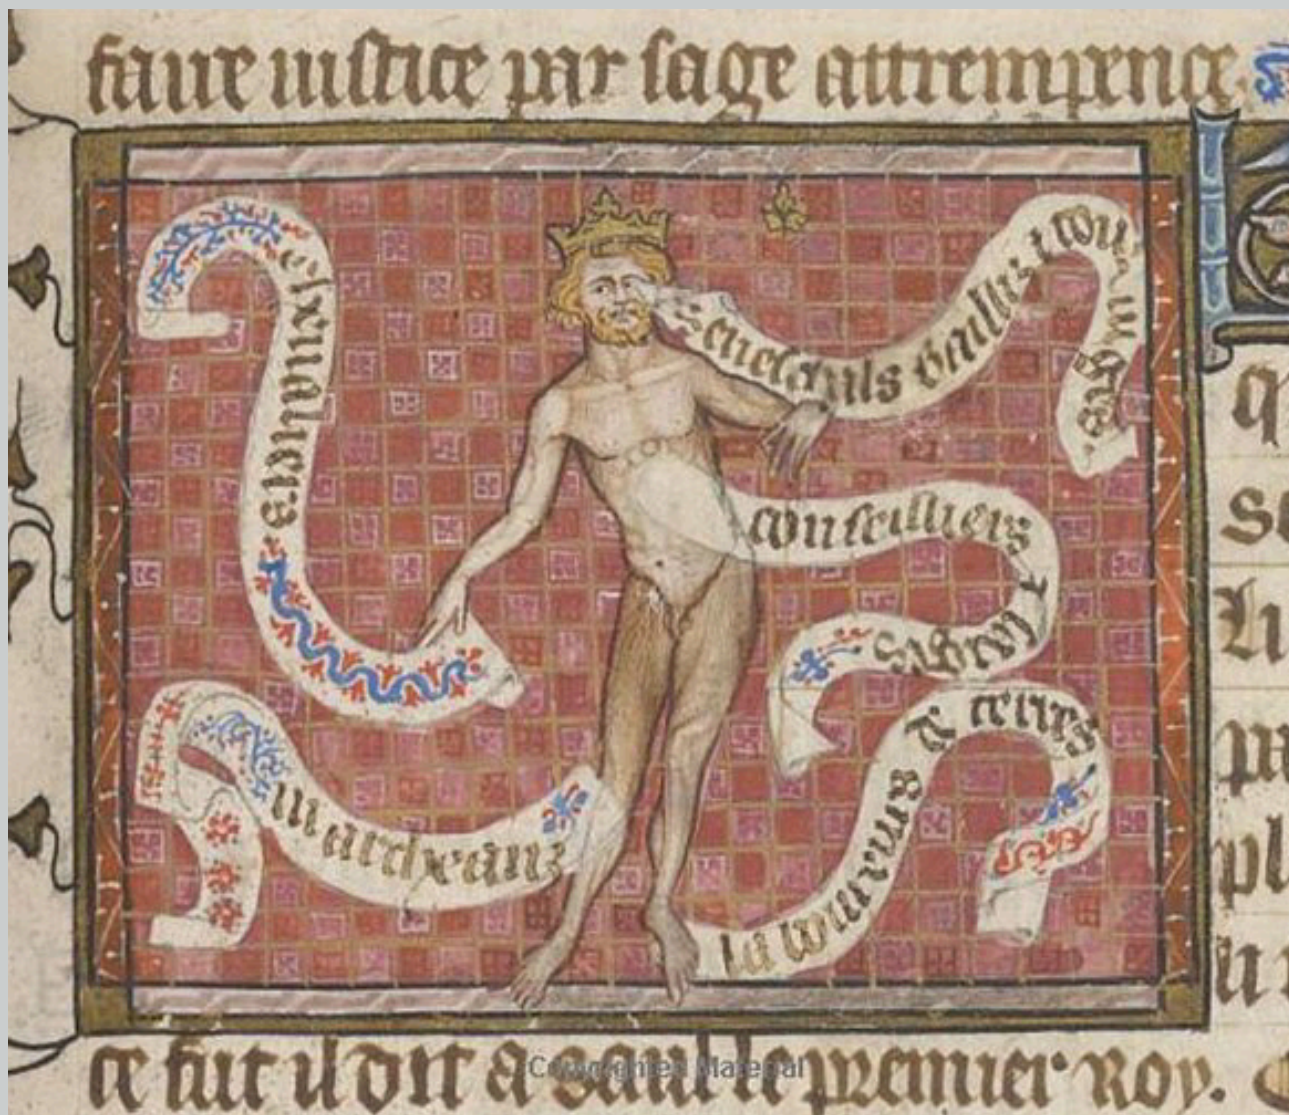 faire iustice par sage attrempence.
chevaliers
Seneschauls baillis &
iuges
conseilliers
& sages
marcheanz
laboureurs de terres
ce fut il dit a Saul le premier Roy.
Copyrighted Material